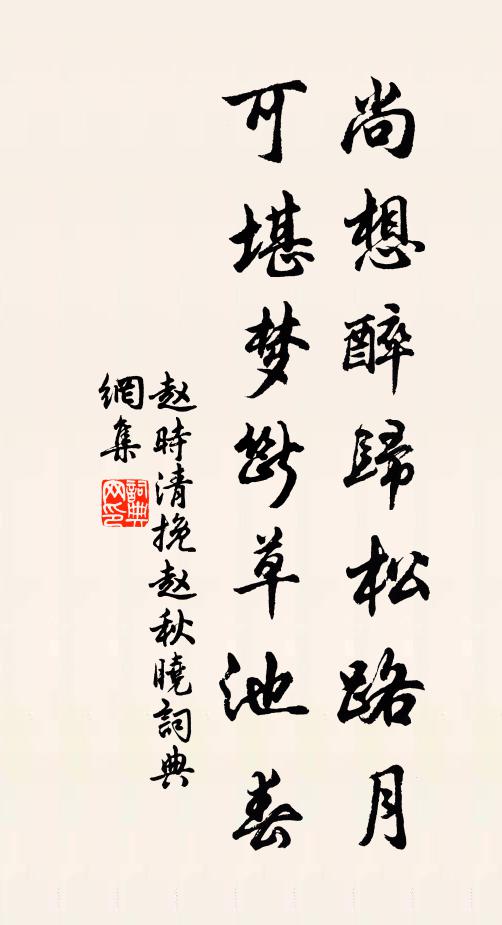 尚想醉歸松路月
可堪梦斷草池春
赵時清挽赵秋曉詞典
網集
詞典
网印